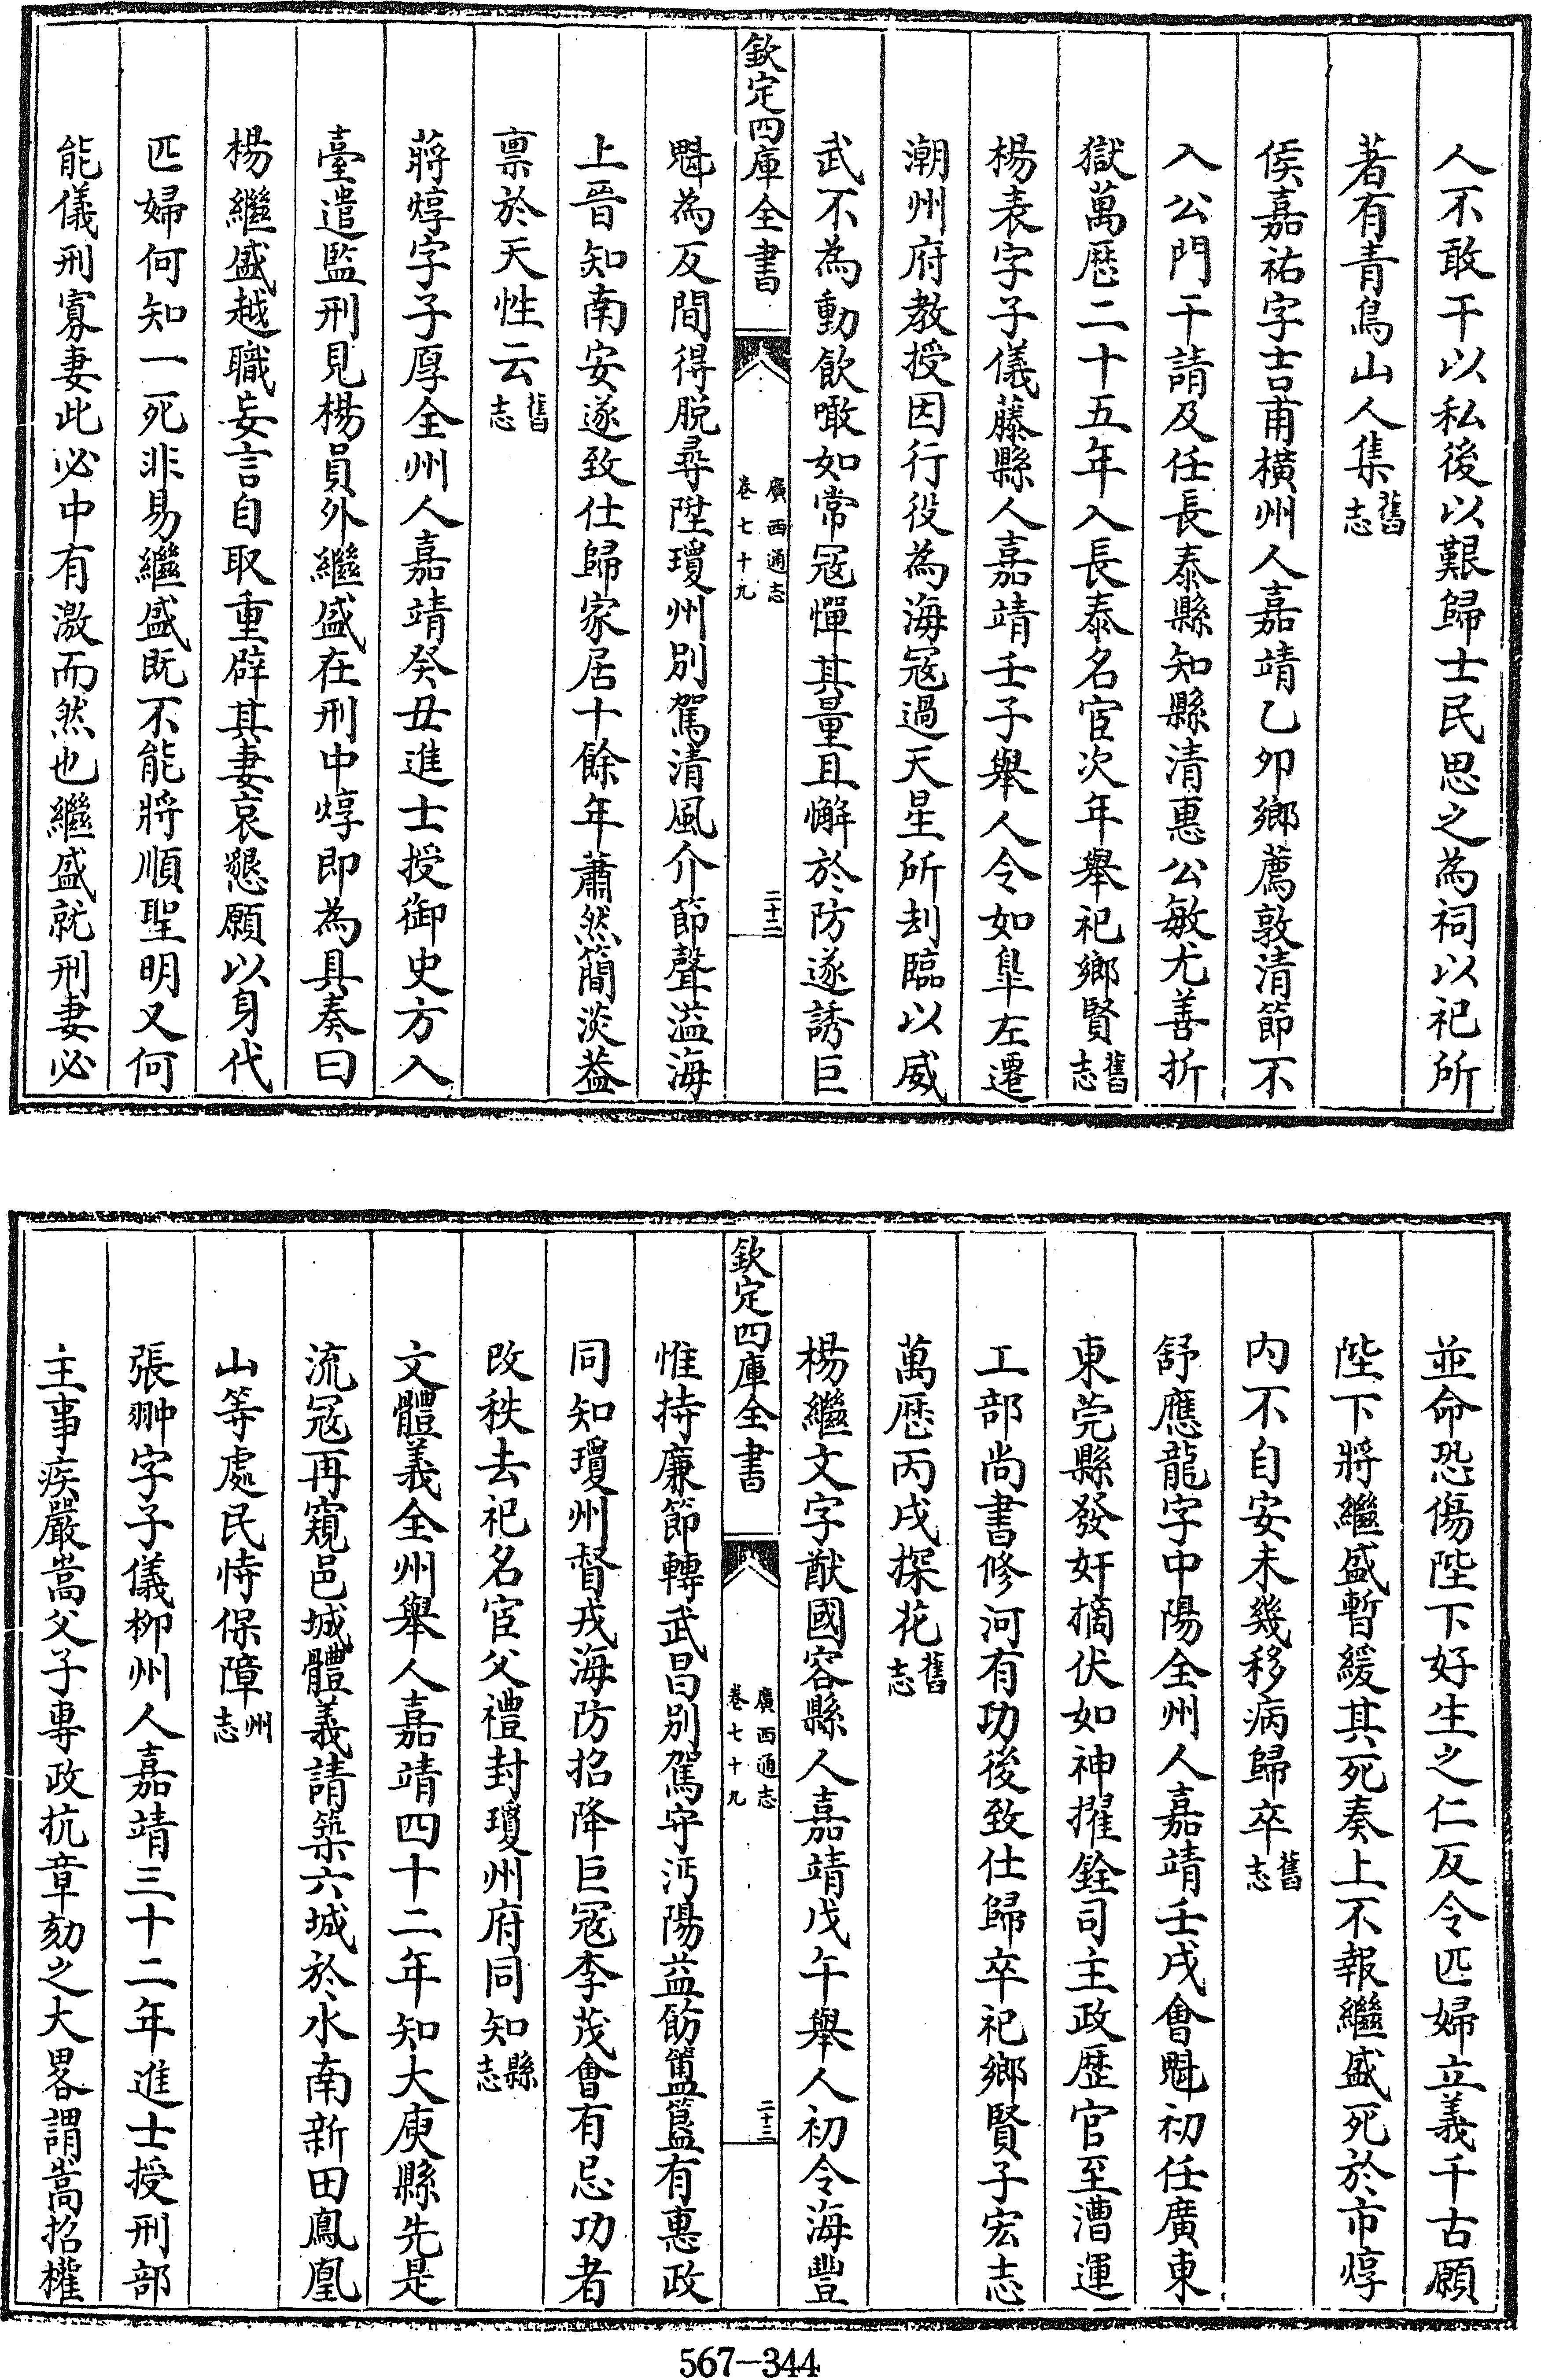 人不敢干以私後以艱歸士民思之為祠以祀所
著有青烏山人集舊志
侯嘉祐字吉甫橫州人嘉靖乙卯鄉薦敦清節不
入公門干請及任長泰縣知縣清惠公敏尤善折
獄萬厯二十五年入長泰名宦次年舉祀鄉賢舊志
楊表字子儀藤縣人嘉靖壬子舉人令如臯左遷
潮州府教授因行役為海冦過天星所刦臨以威
武不為動飲噉如常冦憚其量且懈於防遂誘巨
欽定四庫全書 廣西通志 卷七十九 二十二
魁為反間得脫尋陞瓊州別駕清風介節聲溢海
上晉知南安遂致仕歸家居十餘年蕭然簡淡葢
禀於天性云舊志
蔣焞字子厚全州人嘉靖癸丑進士授御史方入
臺遣監刑見楊員外繼盛在刑中焞即為具奏曰
楊繼盛越職妄言自取重辟其妻哀懇願以身代
匹婦何知一死非易繼盛既不能將順聖明又何
能儀刑寡妻此必中有激而然也繼盛就刑妻必
並命恐傷陛下好生之仁反令匹婦立義千古願
陛下將繼盛暫緩其死奏上不報繼盛死於市焞
内不自安未幾移病歸卒舊志
舒應龍字中陽全州人嘉靖壬戌會魁初任廣東
東莞縣發奸摘伏如神擢銓司主政歴官至漕運
工部尚書修河有功後致仕歸卒祀鄉賢子宏志
萬厯丙戌探花舊志
楊繼文字猷國容縣人嘉靖戊午舉人初令海豐
欽定四庫全書 廣西通志 卷七十九 二十三
惟持廉節轉武昌別駕守沔陽益飭簠簋有惠政
同知瓊州督戎海防招降巨冦李茂會有忌功者
改秩去祀名宦父禮封瓊州府同知縣志
文體義全州舉人嘉靖四十二年知大庾縣先是
流冦再窺邑城體義請築六城於水南新田鳳凰
山等處民恃保障州志
張翀字子儀柳州人嘉靖三十二年進士授刑部
主事疾嚴嵩父子專政抗章劾之大畧謂嵩招權
567-344